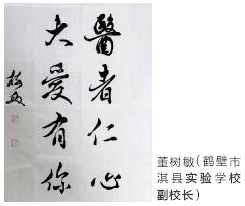 醫者仁心
大愛有你
樹敏
董树敏(鹤壁市
淇县实验学校
副校长)